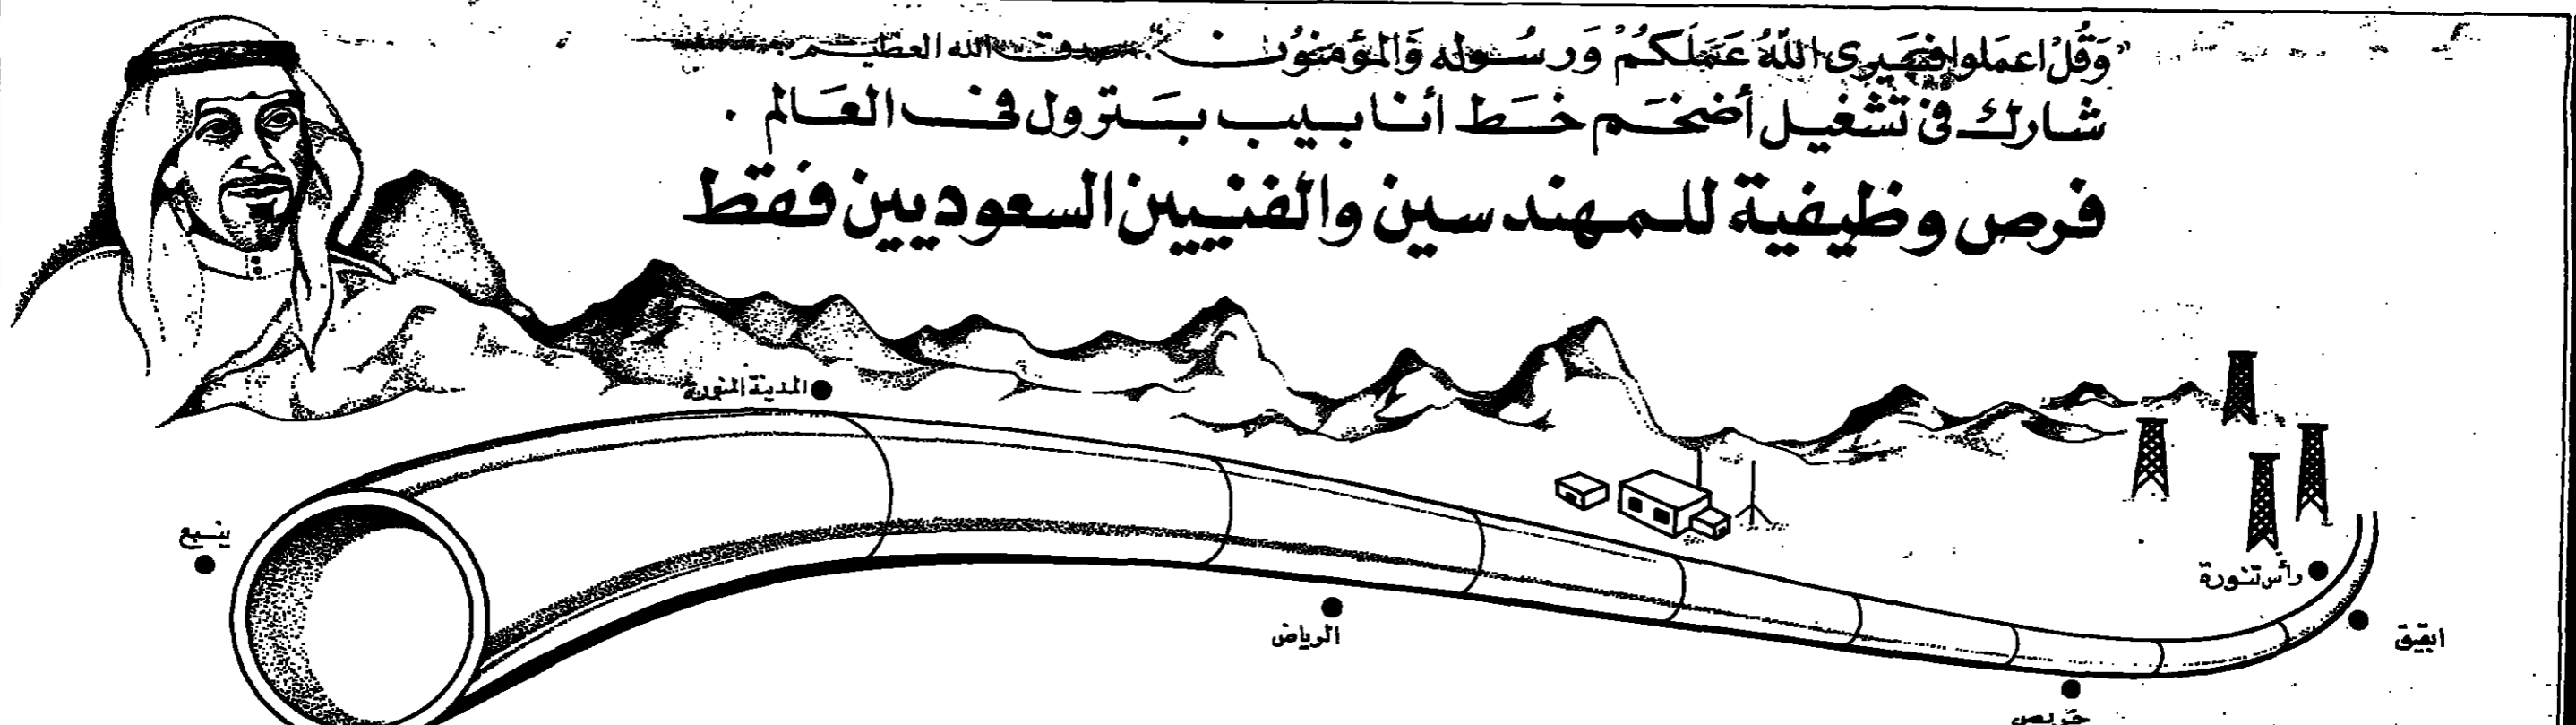 "وَقُلْ اعمَلوا فسَيَرى اللّهُ عَمَلَكُمْ وَرسُوله وَالمؤمنوُن" صدق الله العظيم
شارك فى تشغيل أضخم خط أنابيب بترول فى العالم .
فرص وظيفية للمهندسين والفنيين السعوديين فقط
المدينة المنورة
ينبع
رأس تنورة
الرياض
ابقيق
خريص